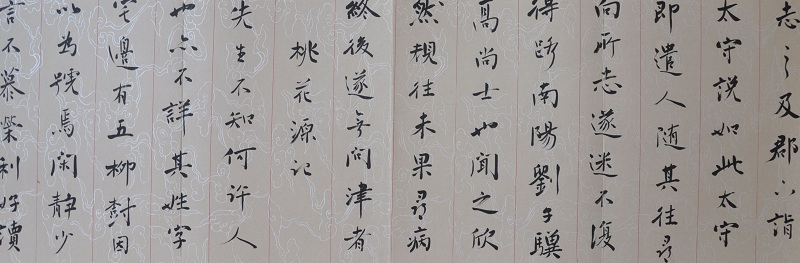 志之及郡下詣
太守說如此太守
即遣人随其往尋
向所志遂迷不復
得路南陽劉子驥
高尚士也聞之欣
然規往未果尋病
終後遂無問津者
桃花源記
先生不知何許人
也亦不詳其姓字
宅邊有五柳樹因
以為號焉閑靜少
言不慕榮利好讀